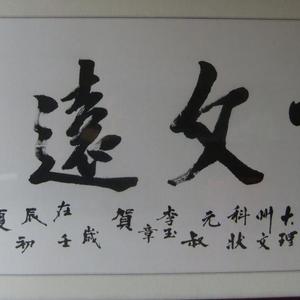 文遠
大理
州文
科狀
元叔
李玉
章
賀
歲
在壬
辰初
夏